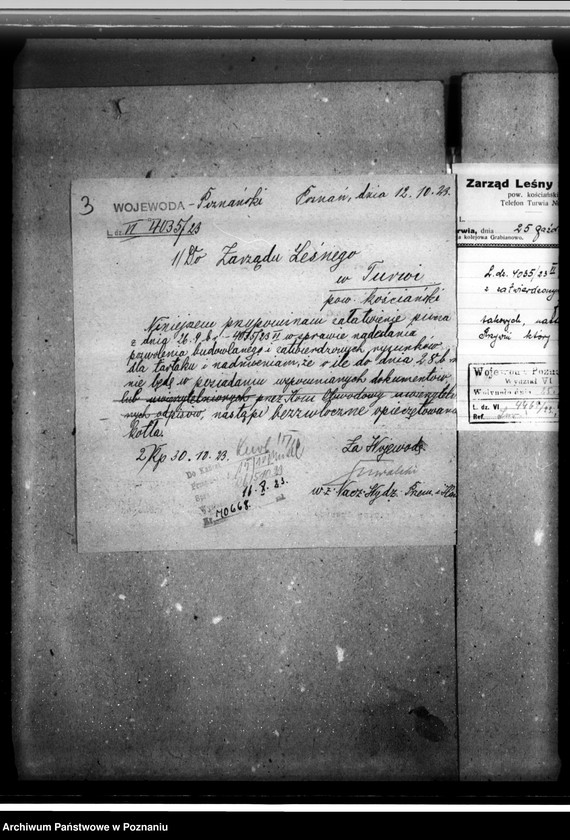 3
WOJEWODA - Poznański Poznań, dnia 12.10.23.
L. dz. VI 4035/23
1/ Do Zarządu Leśnego
w Turwi
pow. kościański
Niniejszem przypominam załatwienie pisma
z dnia 26.9.br. 4035/23 VI w sprawie nadesłania
pozwolenia budowlanego i zatwierdzonych rysunków
dla tartaku i nadmieniam, że o ile do dnia 25 b m
nie będę w posiadaniu wspomnianych dokumentów
lub uwierzytelnionych przez Kom Obwodowy
odpisów, nastąpi bezzwłoczne opieczętowanie
kotła.
2/ Kp 30.10.23. Za Wojewodę
w z. Nacz. Wydz. Przem. i
16.X.23.
Nr. 70668.
Zarząd Leśny
pow. kościański
Telefon Turwia N
Turwia, dnia 25 Paźdz
kolejowa Grabianowo.
L. dz. 4035.23 VI
z zatwierdzonym
który
Wojewoda Pozna
Wydział VI
Wpłynęło dnia
L. dz. VI
Ref.
Archiwum Państwowe w Poznaniu